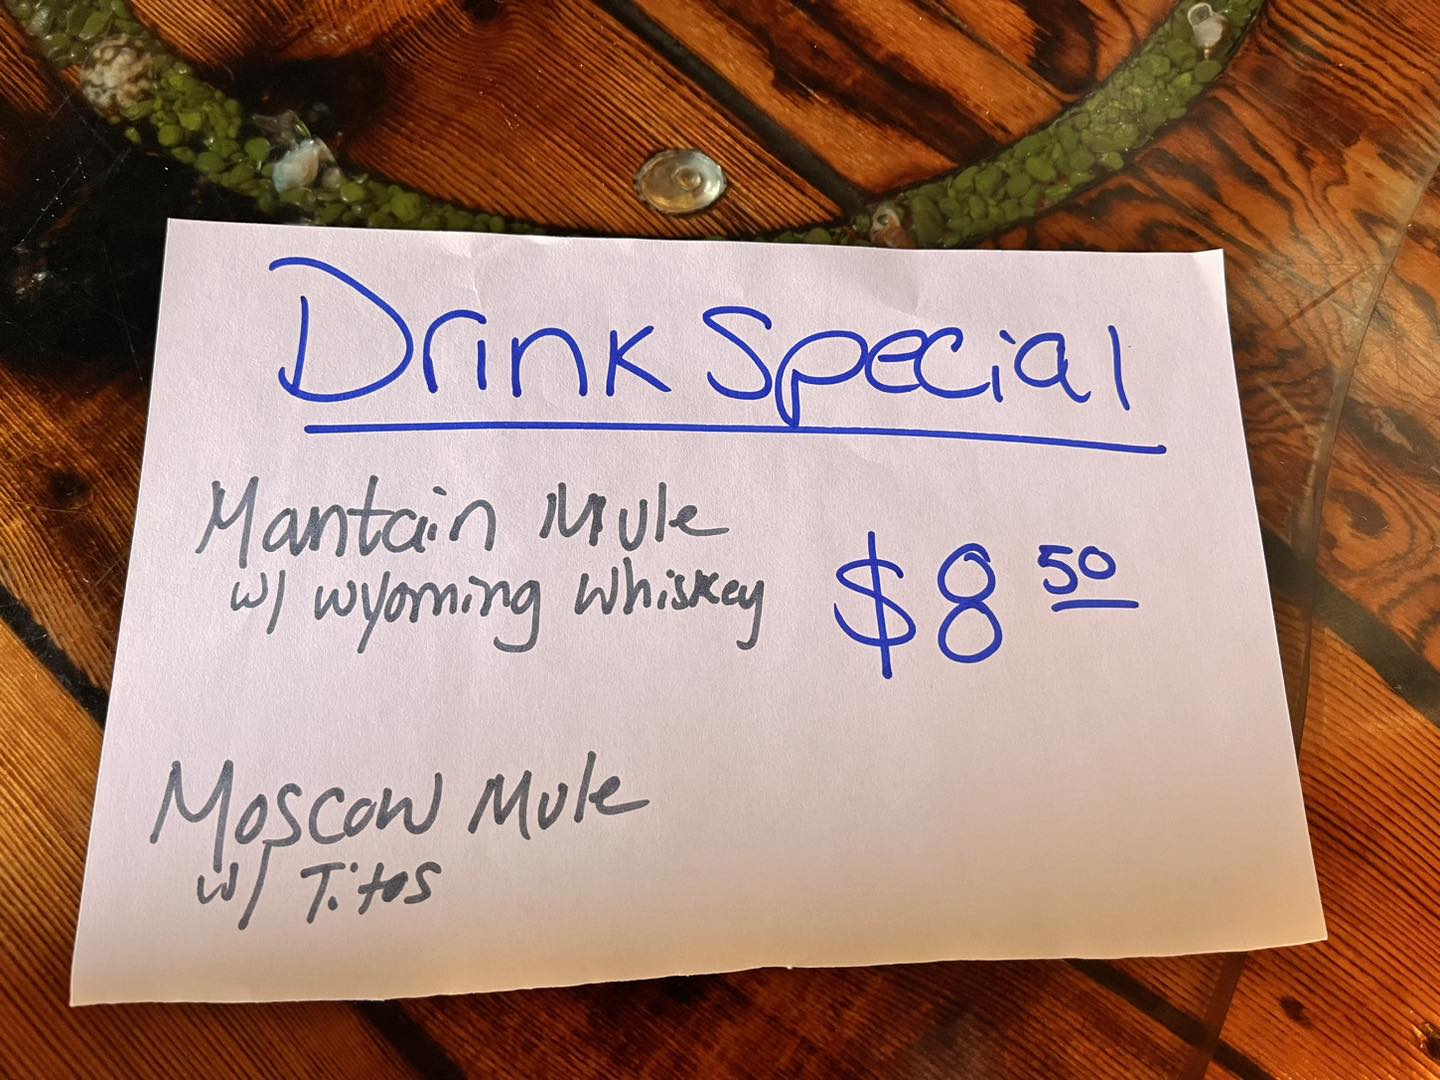 Drink Special
Mantain Mule
w/ wyoming whiskey
$8 50
Moscow Mule
w/ Titos